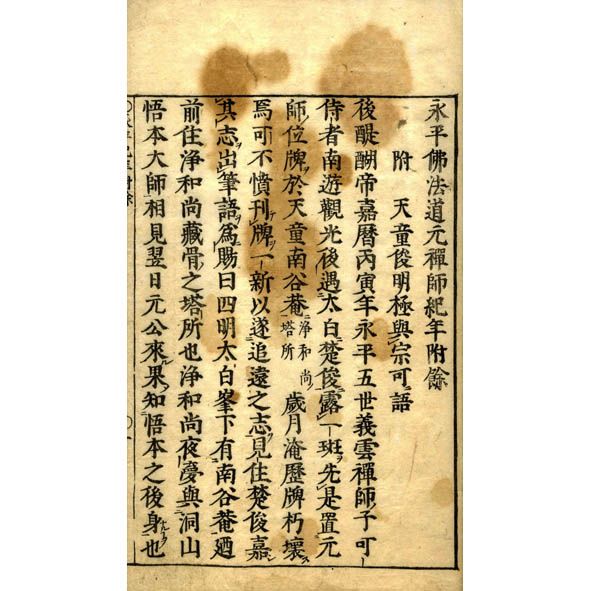 永平佛法道元禪師紀年附餘
附 天童俊明極與宗可語
後醍醐帝嘉曆丙寅年永平五世義雲禪師ノ子可一
侍者南遊觀光後遇太白楚俊露一班先是置元
師ノ位牌於天童南谷菴淨和尚ノ塔所歲月淹歷牌朽壞ス
焉可不憤刊牌一新以遂追遠之志見住楚俊嘉
其志出筆語爲賜曰四明太白峯下有南谷菴廼
前住淨和尚藏骨之塔所也淨和尚夜夢與洞山
悟本大師相見翌日元公來果知悟本之後身也